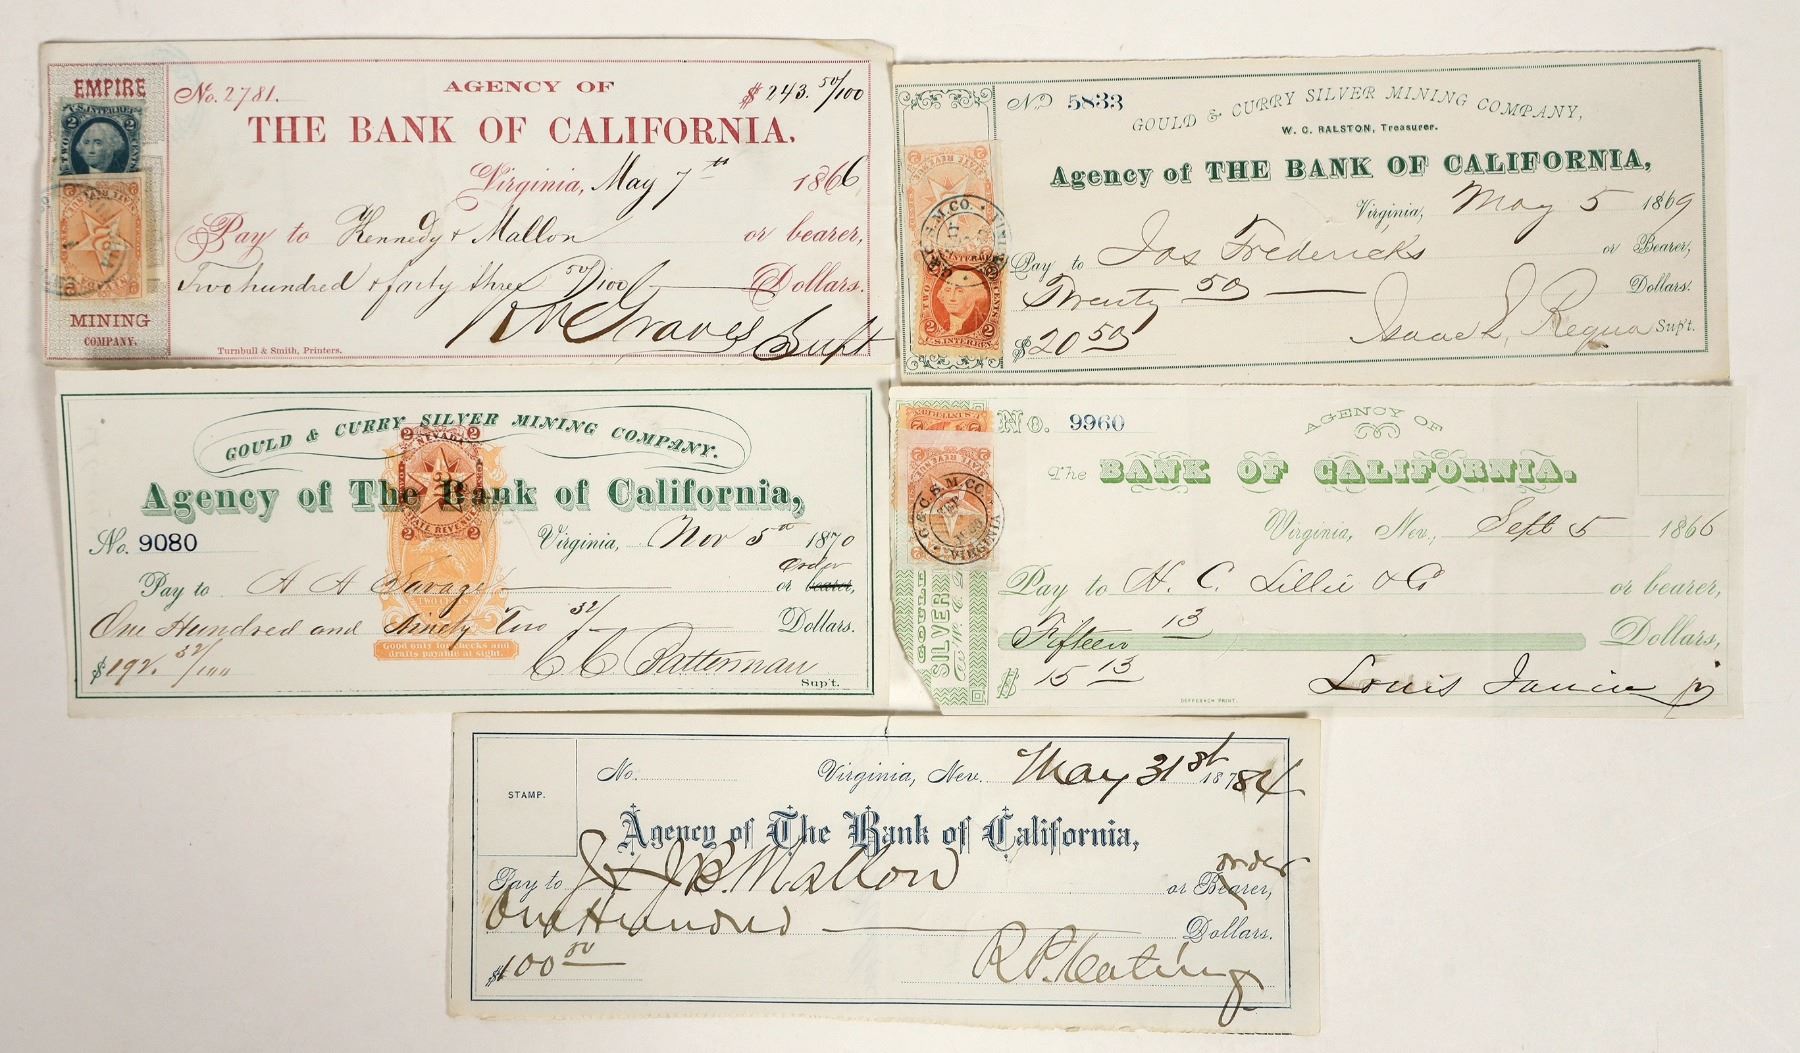 EMPIRE
MINING
COMPANY.
No. 2781.
AGENCY OF
$ 243. 50/100
THE BANK OF CALIFORNIA.
Virginia, May 7th 1866
Pay to Kennedy & Mallon or bearer,
Two hundred & forty three 50/100 Dollars.
R M Graves Supt
Turnbull & Smith, Printers.
U.S. INTER. REV.
TWO CENTS
No 5833
GOULD & CURRY SILVER MINING COMPANY,
W. C. RALSTON, Treasurer.
Agency of THE BANK OF CALIFORNIA,
Virginia, May 5 1869
Pay to Jas Fredericks or Bearer,
Twenty 50 Dollars.
$20 50 Isaac L. Requa Sup't.
G. & C. S. M. CO. VIRGINIA
U.S. INTER. REV.
GOULD & CURRY SILVER MINING COMPANY.
Agency of The Bank of California,
No. 9080 Virginia, Nov 5th 1870
order
Pay to A A Savage or bearer,
One Hundred and Ninety Two 32/ Dollars.
$192. 32/100 C C Batterman
Sup't.
2 NEVADA 2
STATE REVENUE
TWO CENTS
Good only for checks and
drafts payable at sight.
No. 9960
AGENCY OF
The BANK OF CALIFORNIA.
Virginia, Nev., Sept 5 1866
Pay to H. C. Lillie & Co or bearer,
Fifteen 13 Dollars,
$ 15 13 Louis Janin Jr
DEFFEBACH PRINT.
GOULD
SILVER
G. & C. S. M. CO.
VIRGINIA
STAMP.
No. Virginia, Nev. May 31st 18784
Agency of The Bank of California,
order
Pay to J. B. Mallon or Bearer,
One Hundred Dollars.
$100 00 R. P. Keating